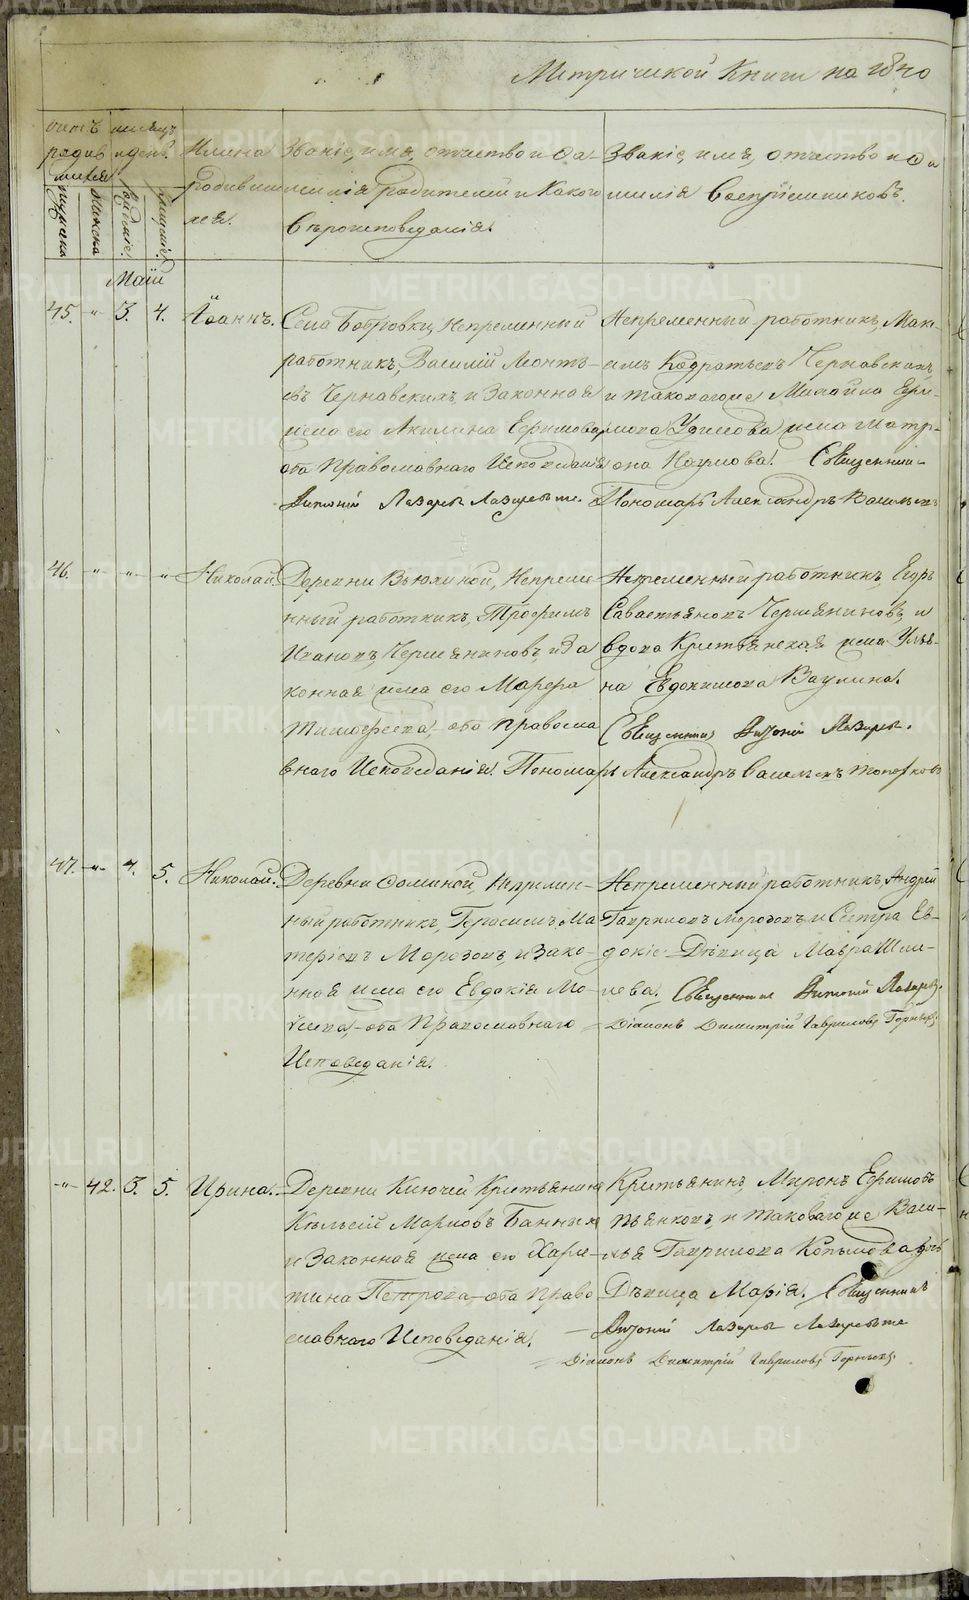 Метрической Книги на 1840
счетъ родившихся
мужеска
женска
месяцъ и день
рожденiе
крещенiе
Имена родившихся.
Званiе, имя, отчество и фамилiя родителей и какого вѣроисповеданiя.
Званiе, имя, отчество и фамилiя воспрiемниковъ.
Маiй
45. " 3. 4. Iоаннъ.
Села Бобровки, Непременный
работникъ, Василiй Леонтьевъ Чернавскихъ, и законная
жена его Акилина Ефимова,
оба Православнаго Исповеданiя
Непременный работникъ, Максимъ Кодратьевъ Чернавскихъ,
и таковагоже Михайла
жена Матрона Наумова. Священникъ
Антонiй Лазаревъ
Пономарь Александръ Васильевъ
46. " " " Николай.
Деревни Вьюхиной, Непременный работникъ, Трофимъ
Ивановъ Черемяниновъ, и законная жена его Марфа
Тимофеева, оба православнаго Исповеданiя.
Непременный работникъ, Егоръ
Савастьяновъ Черемяниновъ, и
вдова Крестьянская жена Ульяна Евдокимова Ваулина.
Священникъ Антонiй Лазаревъ.
Пономарь Александръ Васильевъ Топорковъ
47. " 4. 5. Николай.
Деревни Фоминой, Непременный работникъ, Герасимъ
Морозовъ, и законная жена его Евдокiя
оба Православнаго
Исповеданiя.
Непременный работникъ, Андрей
Гавриловъ Морозовъ, и Сестра Евдокiе Дѣвица Мавра
Священникъ Антонiй Лазаревъ.
Дiаконъ Димитрiй Гавриловъ
" 42. 3. 5. Ирина.
Деревни Ключей Крестьянинъ
Марковъ Банныхъ
и законная жена его Харитина Петрова, оба Православнаго Исповеданiя.
Крестьянинъ, Миронъ Ефимовъ
Пьянковъ, и таковагоже
Гаврилова Копылова дочь
Дѣвица Марiя. Священникъ
Антонiй Лазаревъ
Дiаконъ Димитрiй Гавриловъ
METRIKI.GASO-URAL.RU